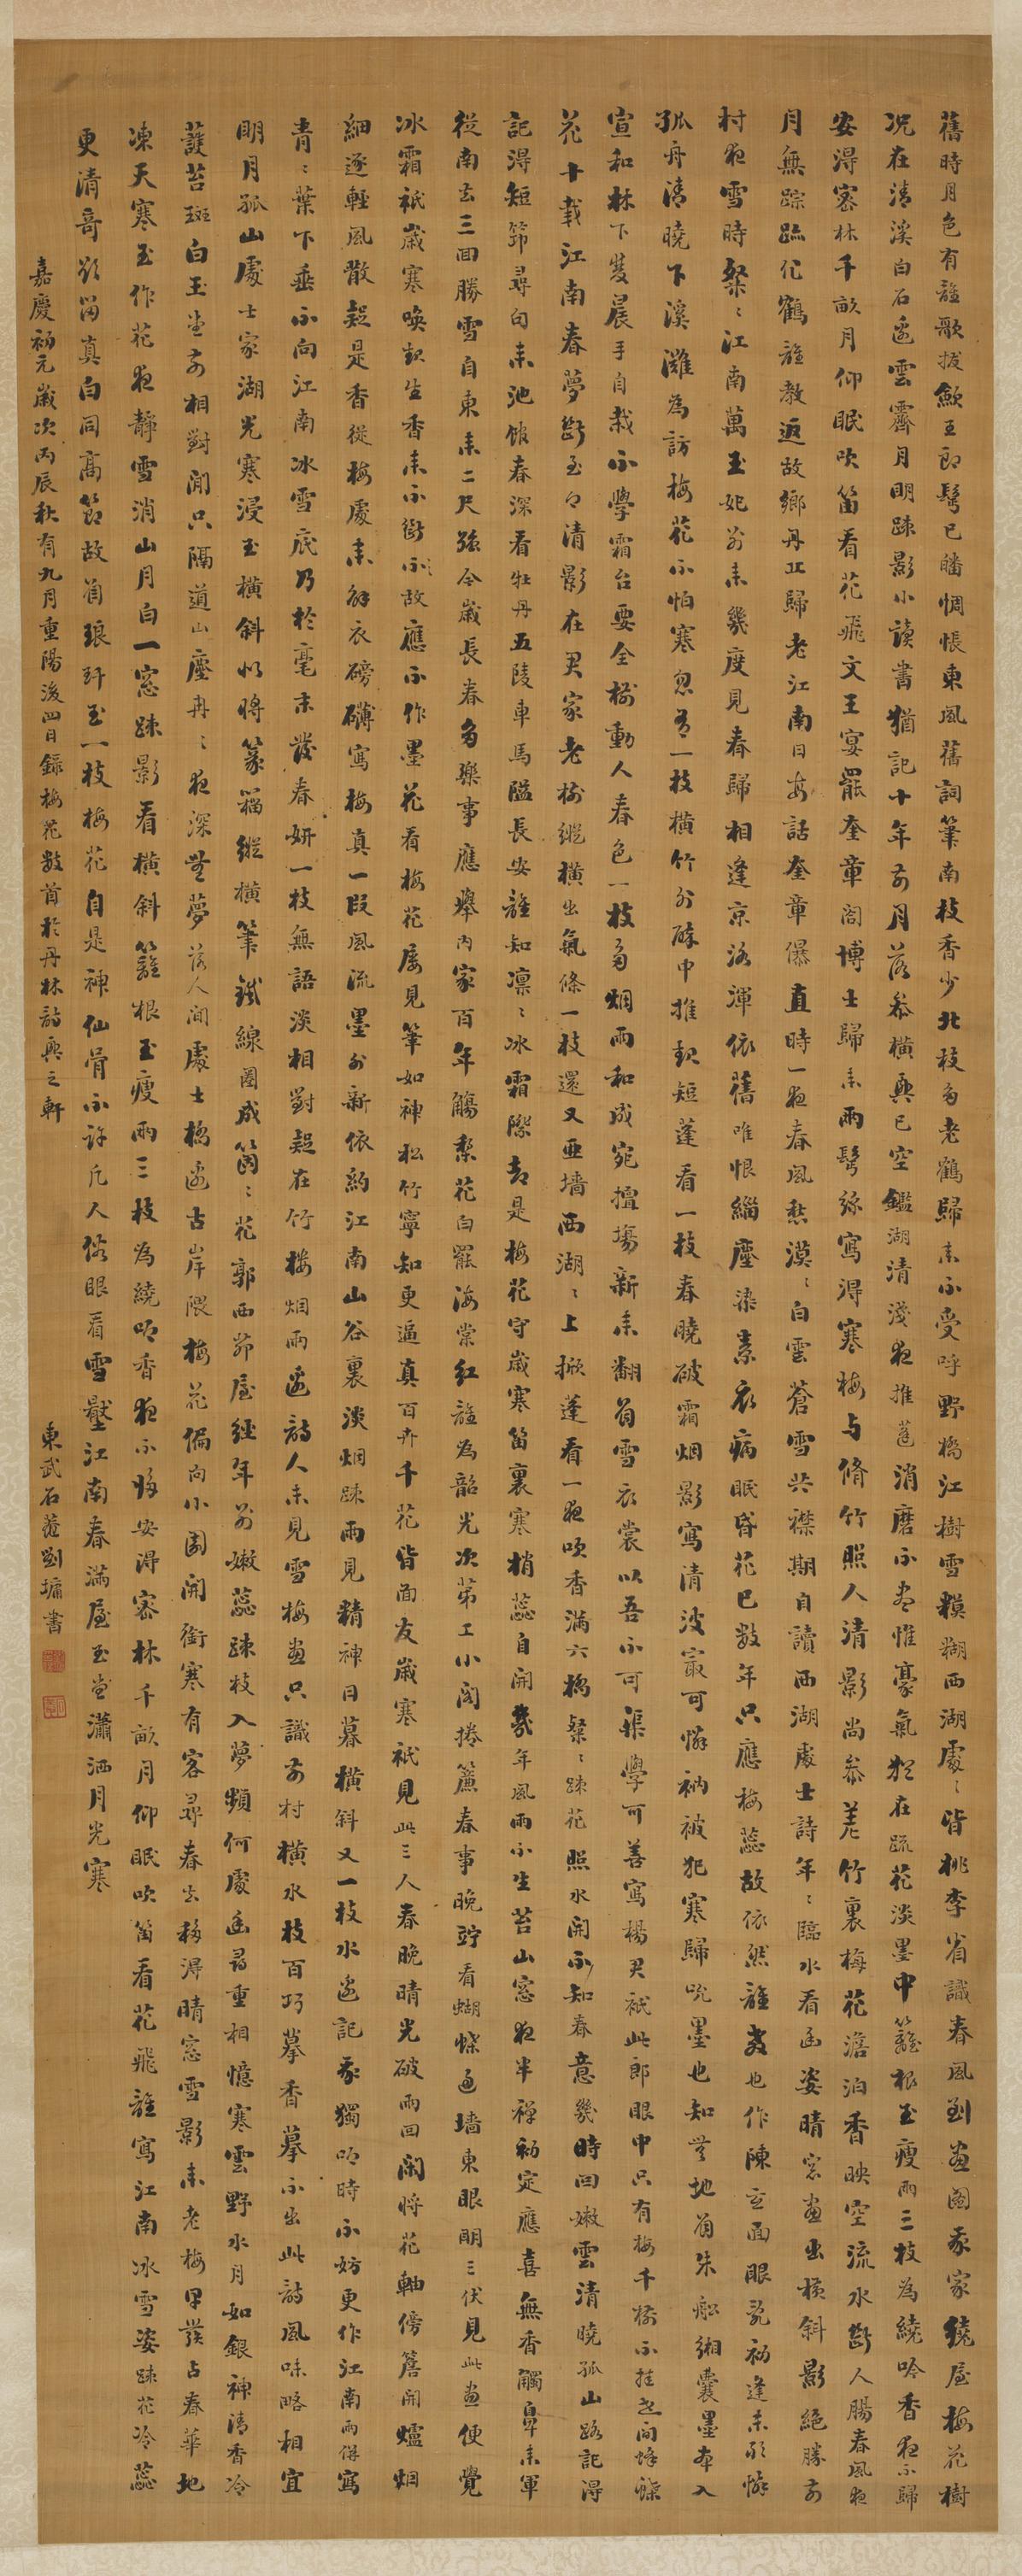 舊時月色有誰歌拔歛王郎鬢已皤惆悵東風舊詞筆南枝香少北枝多老鶴歸來不受呼野橋江樹雪模糊西湖處〻皆桃李省識春風到畫圖家家繞屋梅花樹
况在清溪白石邊雲霽月明疎影小讀書猶記十年前月落參橫興已空鑑湖清淺夜推蓬消磨不盡惟豪氣猶在疏花淡墨中籬根玉瘦兩三枝為繞吟香夜不歸
安得密林千畝月仰眠吹笛看花飛文王宴罷奎章閣博士歸來兩鬢絲寫得寒梅与脩竹照人清影尚參差竹裏梅花澹泊香映空流水斷人腸春風夜
月無踪跡化鶴誰教返故鄉丹丘歸老江南日每話奎章儤直時一夜春風愁漠〻白雲蒼雪共襟期自讀西湖處士詩年〻臨水看幽姿晴窓畫出橫斜影絕勝前
村夜雪時粲〻江南萬玉妃前來幾度見春歸相逢京洛渾依舊唯恨緇塵染素衣病眠昏花已數年只應梅蕊故依然誰教也作陳玄面眼亂初逢未敢憐
孤舟清曉下溪灘為訪梅花不怕寒忽有一枝橫竹外醉中推起短蓬看一枝春曉破霜烟影寫清波最可憐衲被犯寒歸吮墨也知無地著朱船緗囊墨本入
宣和林下雙晨手自栽不學霜台要全樹動人春色一枝多烟雨和成宛擅場新來翻著雪衣裳以吾不可學可善寫楊君祇此郎眼中只有梅千樹不挂世間蜂蝶
花十載江南春夢斷玉人清影在君家老樹縱橫出氣條一枝還又亞墙西湖〻上掀蓬看一夜吹香滿六橋粲〻疎花照水開不知春意幾時回嫩雲清曉孤山路記得
記得短筇尋句來池館春深看牡丹五陵車馬隘長安誰知凛〻冰霜際都是梅花守歲寒笛裏寒梢蕊自開幾年風雨不生苔山窓夜半禪初定應喜無香觸鼻來軍
從南去三回勝雪自東來二尺強今歲長春多樂事應攀內家百年觴梨花白罷海棠紅誰為韶光次第工小閣捲簾春事晚貯看蝴蝶過墙東眼明三伏見此畫便覺
冰霜祇歲寒喚起生香來不衙不故應不作墨花看梅花屢見筆如神松竹寧知更逼真百卉千花皆面友歲寒祇見此三人春晚晴光破雨回閑將花軸傍簷開爐烟
細逐輕風散疑是香從梅處來解衣磅礡寫梅真一段風流墨外新依約江南山谷裏淡烟疎雨見精神日暮橫斜又一枝水邊記我獨吟時不妨更作江南雨併寫
青〻葉下垂不向江南冰雪底乃於毫末發春妍一枝無語淡相對疑在竹樓烟雨邊詩人未見雪梅畫只識前村橫水枝百巧摹香摹不出此詩風味略相宜
明月孤山處士家湖光寒浸玉橫斜似將篆籀縱橫筆鐵線圈成箇〻花郭西茆屋經年前嫩蕊疎枝入夢頻何處幽尋重相憶寒雲野水月如銀神清香冷
護苔斑白玉堂前相對閒只隔道山塵冉〻夜深無夢落人間處士橋邊古岸隈梅花偏向小園開銜寒有客尋春去移得晴窓雪影來老梅早發占春華地
凍天寒玉作花夜靜雪消山月白一窓疎影看橫斜籬根玉瘦兩三枝為繞吟香夜不歸安得密林千畝月仰眠吹笛看花飛誰寫江南冰雪姿疎花冷蕊
更清奇欲留真白同高節故着琅玕玉一枝梅花自是神仙骨不許凡人俗眼看雪壑江南春滿屋玉堂瀟洒月光寒
嘉慶初元歲次丙辰秋有九月重陽後四日錄梅花數首於丹林詩興之軒
東武石菴劉墉書